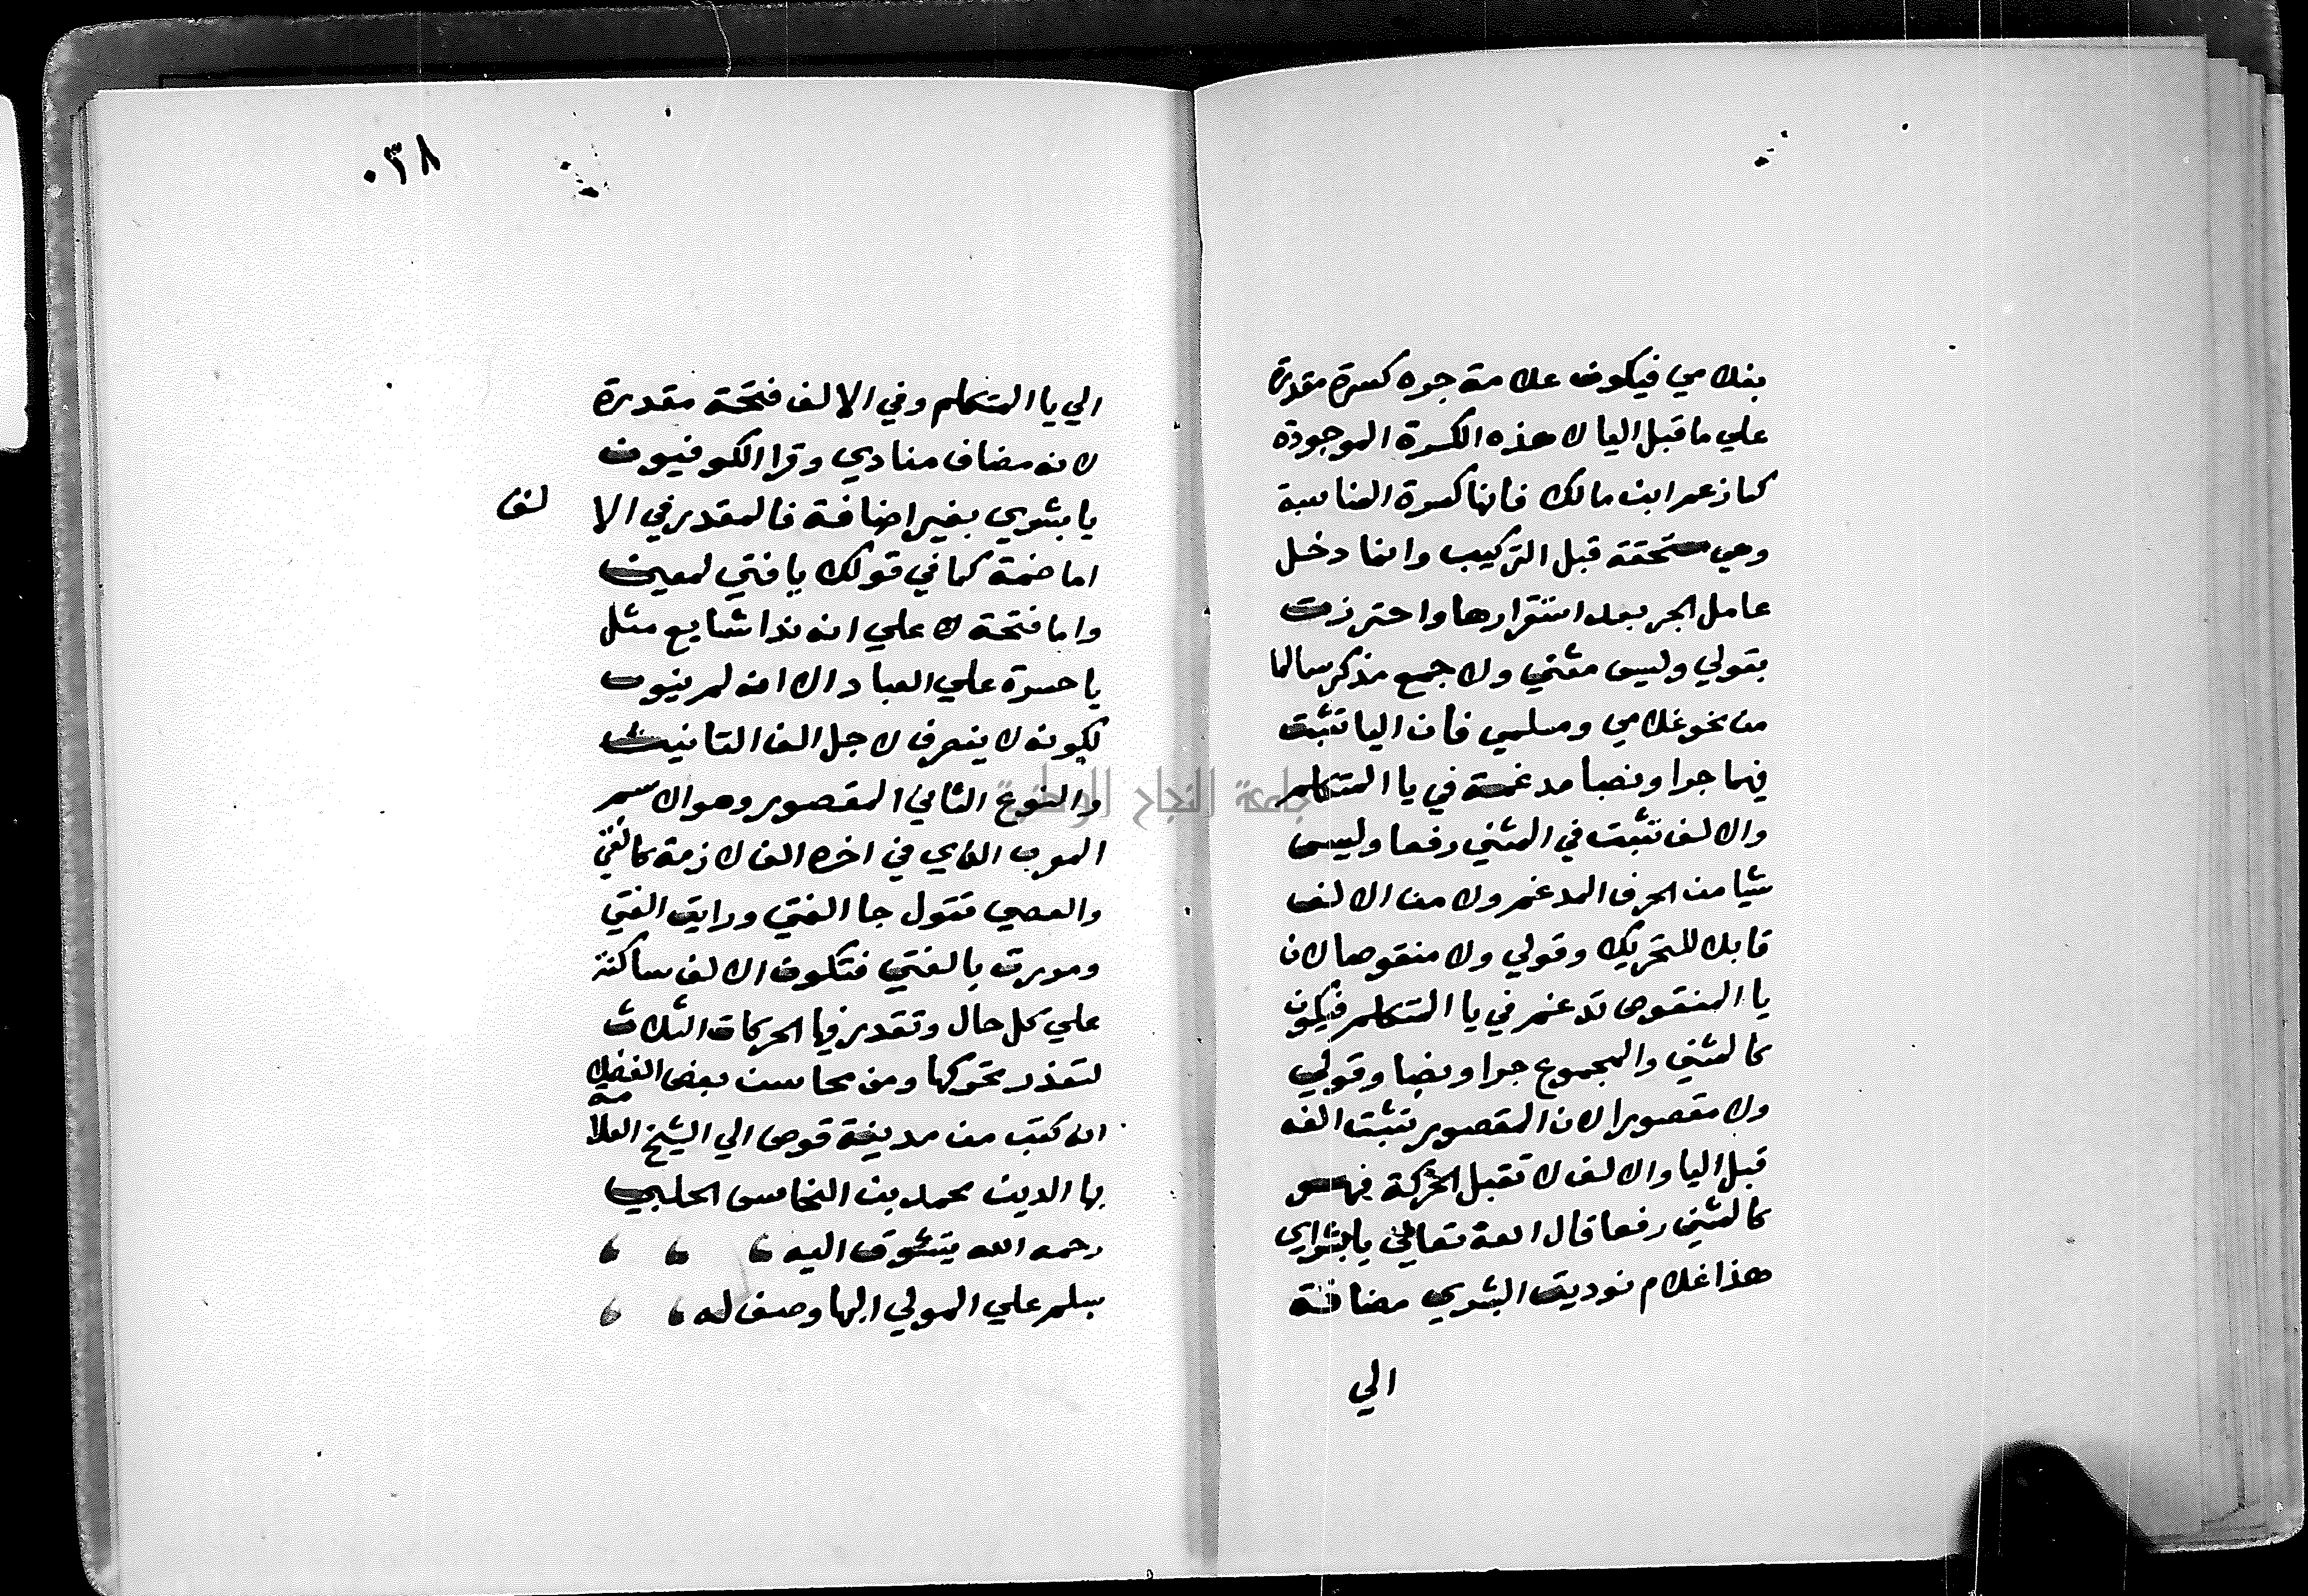 بغلامي فيكون علامة جره كسرة مقدرة
علي ما قبل اليا لا هذه الكسرة الموجودة
كما زعم ابن مالك فانها كسرة المناسبة
وهي مستحقة قبل التركيب وانما دخل
عامل الجر بعد استقرارها واحترزت
بقولي وليس مثني ولا جمع مذكر سالما
من نحو غلامي ومسلمي فان اليا تثبت
فيهما جرا ونصبا مدغمة في يا المتكلم
والالف تثبت في المثني رفعا وليس
شيا من الحرف المدغم ولا من الالف
قابلا للتحريك وقولي ولا منقوصا لان
يا المنقوص تدغم في يا المتكلم فيكون
كالمثني والمجموع جرا ونصبا وقولي
ولا مقصورا لان المقصور تثبت الفه
قبل اليا والالف لا تقبل الحركة فهو
كالمثني رفعا قال الله تعالي يا بشراي
هذا غلام نوديت البشري مضافة
الي
٠٣٨
الي يا المتكلم وفي الالف فتحة مقدرة
لانه مضاف منادي وقرا الكوفيون
يا بشري بغير اضافة فالمقدر في الا لف
اما ضمة كما في قولك يا فتي لمعين
واما فتحة لا علي انه ندا شايع مثل
يا حسرة علي العباد الا انه لم ينون
لكونه لا ينصرف لاجل الف التانيث
والنوع الثاني المقصور وهو الاسم
المعرب الذي في اخره الف لازمة كالفتي
والعصي تقول جا الفتي ورايت الفتي
ومررت بالفتي فتكون الالف ساكنة
علي كل حال وتقدر فيها الحركات الثلاث
لتعذر تحركها ومن محاسن بعض الفضلا
انه كتب من مدينة قوص الي الشيخ العلا مة
بها الدين محمد بن النحاس الحلبي
رحمه الله يتشوق اليه
سلم علي المولي البها وصف له
جامعة النجاح الوطنية